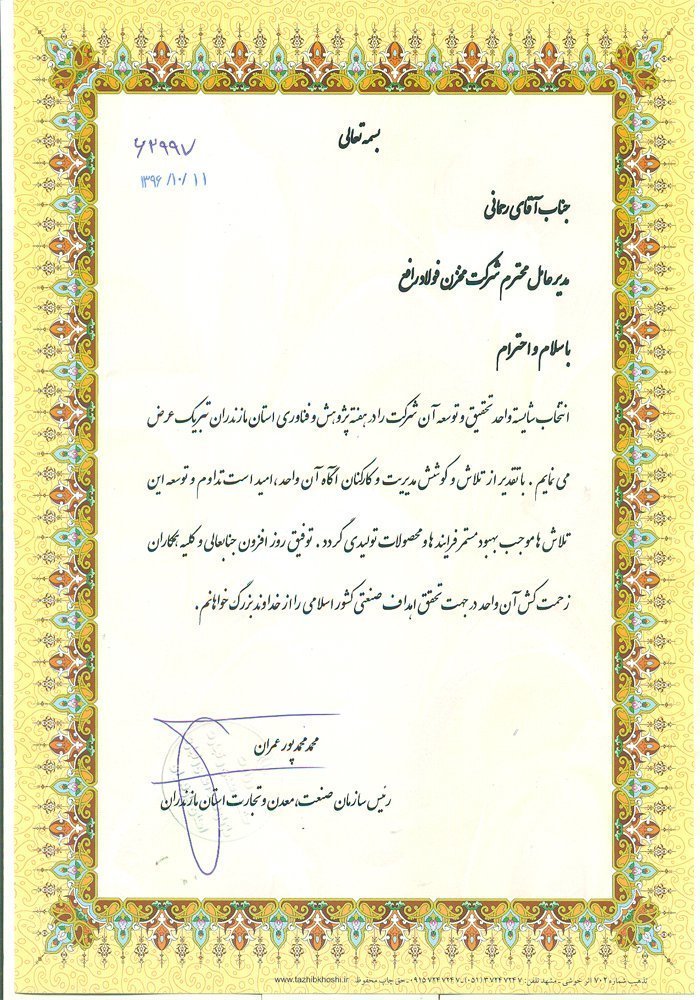 بسمه تعالی
۶۲۹۹۷
۱۳۹۶/۱۰/۱۱
جناب آقای رحمانی
مدیر عامل محترم شرکت مخزن فولاد رافع
با سلام و احترام
انتخاب شایسته واحد تحقیق و توسعه آن شرکت را در هفته پژوهش و فناوری استان مازندران تبریک عرض
می نمایم . با تقدیر از تلاش و کوشش مدیریت و کارکنان آگاه آن واحد ، امید است تداوم و توسعه این
تلاش ها موجب بهبود مستمر فرایند ها و محصولات تولیدی گردد . توفیق روز افزون جنابعالی و کلیه همکاران
زحمت کش آن واحد در جهت تحقق اهداف صنعتی کشور اسلامی را از خداوند بزرگ خواهانم .
محمد محمد پور عمران
رئیس سازمان صنعت، معدن و تجارت استان مازندران
تذهیب شماره ۷۰۲ اثر خوشی - مشهد تلفن: ۳۷۲۴۷۲۴۷ (۰۵۱) - ۰۹۱۵۷۲۴۷۲۴۷ - حق چاپ محفوظ www.tazhibkhoshi.ir